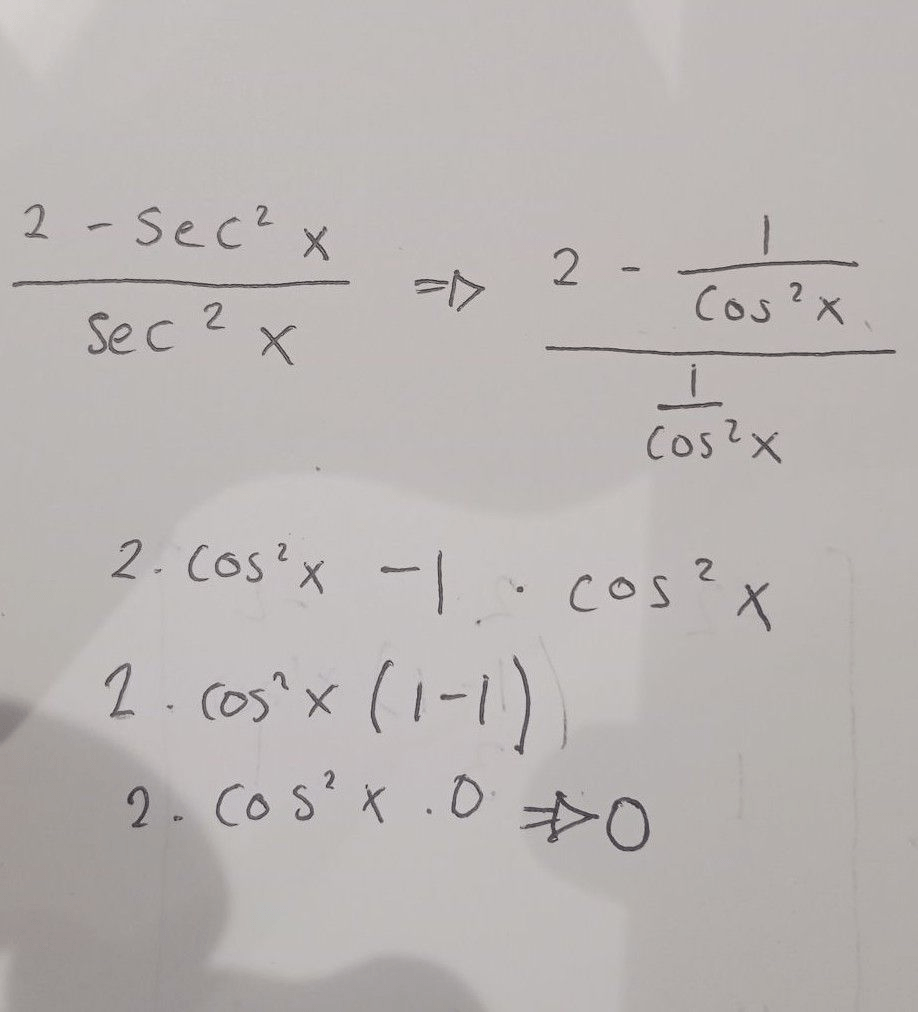 (2 - sec² x)/(sec² x) ⇒ (2 - 1/(cos² x))/(1/(cos² x))
2. cos² x - 1 . cos² x
2 . cos² x (1-1)
2. cos² x . 0 ⇒ 0